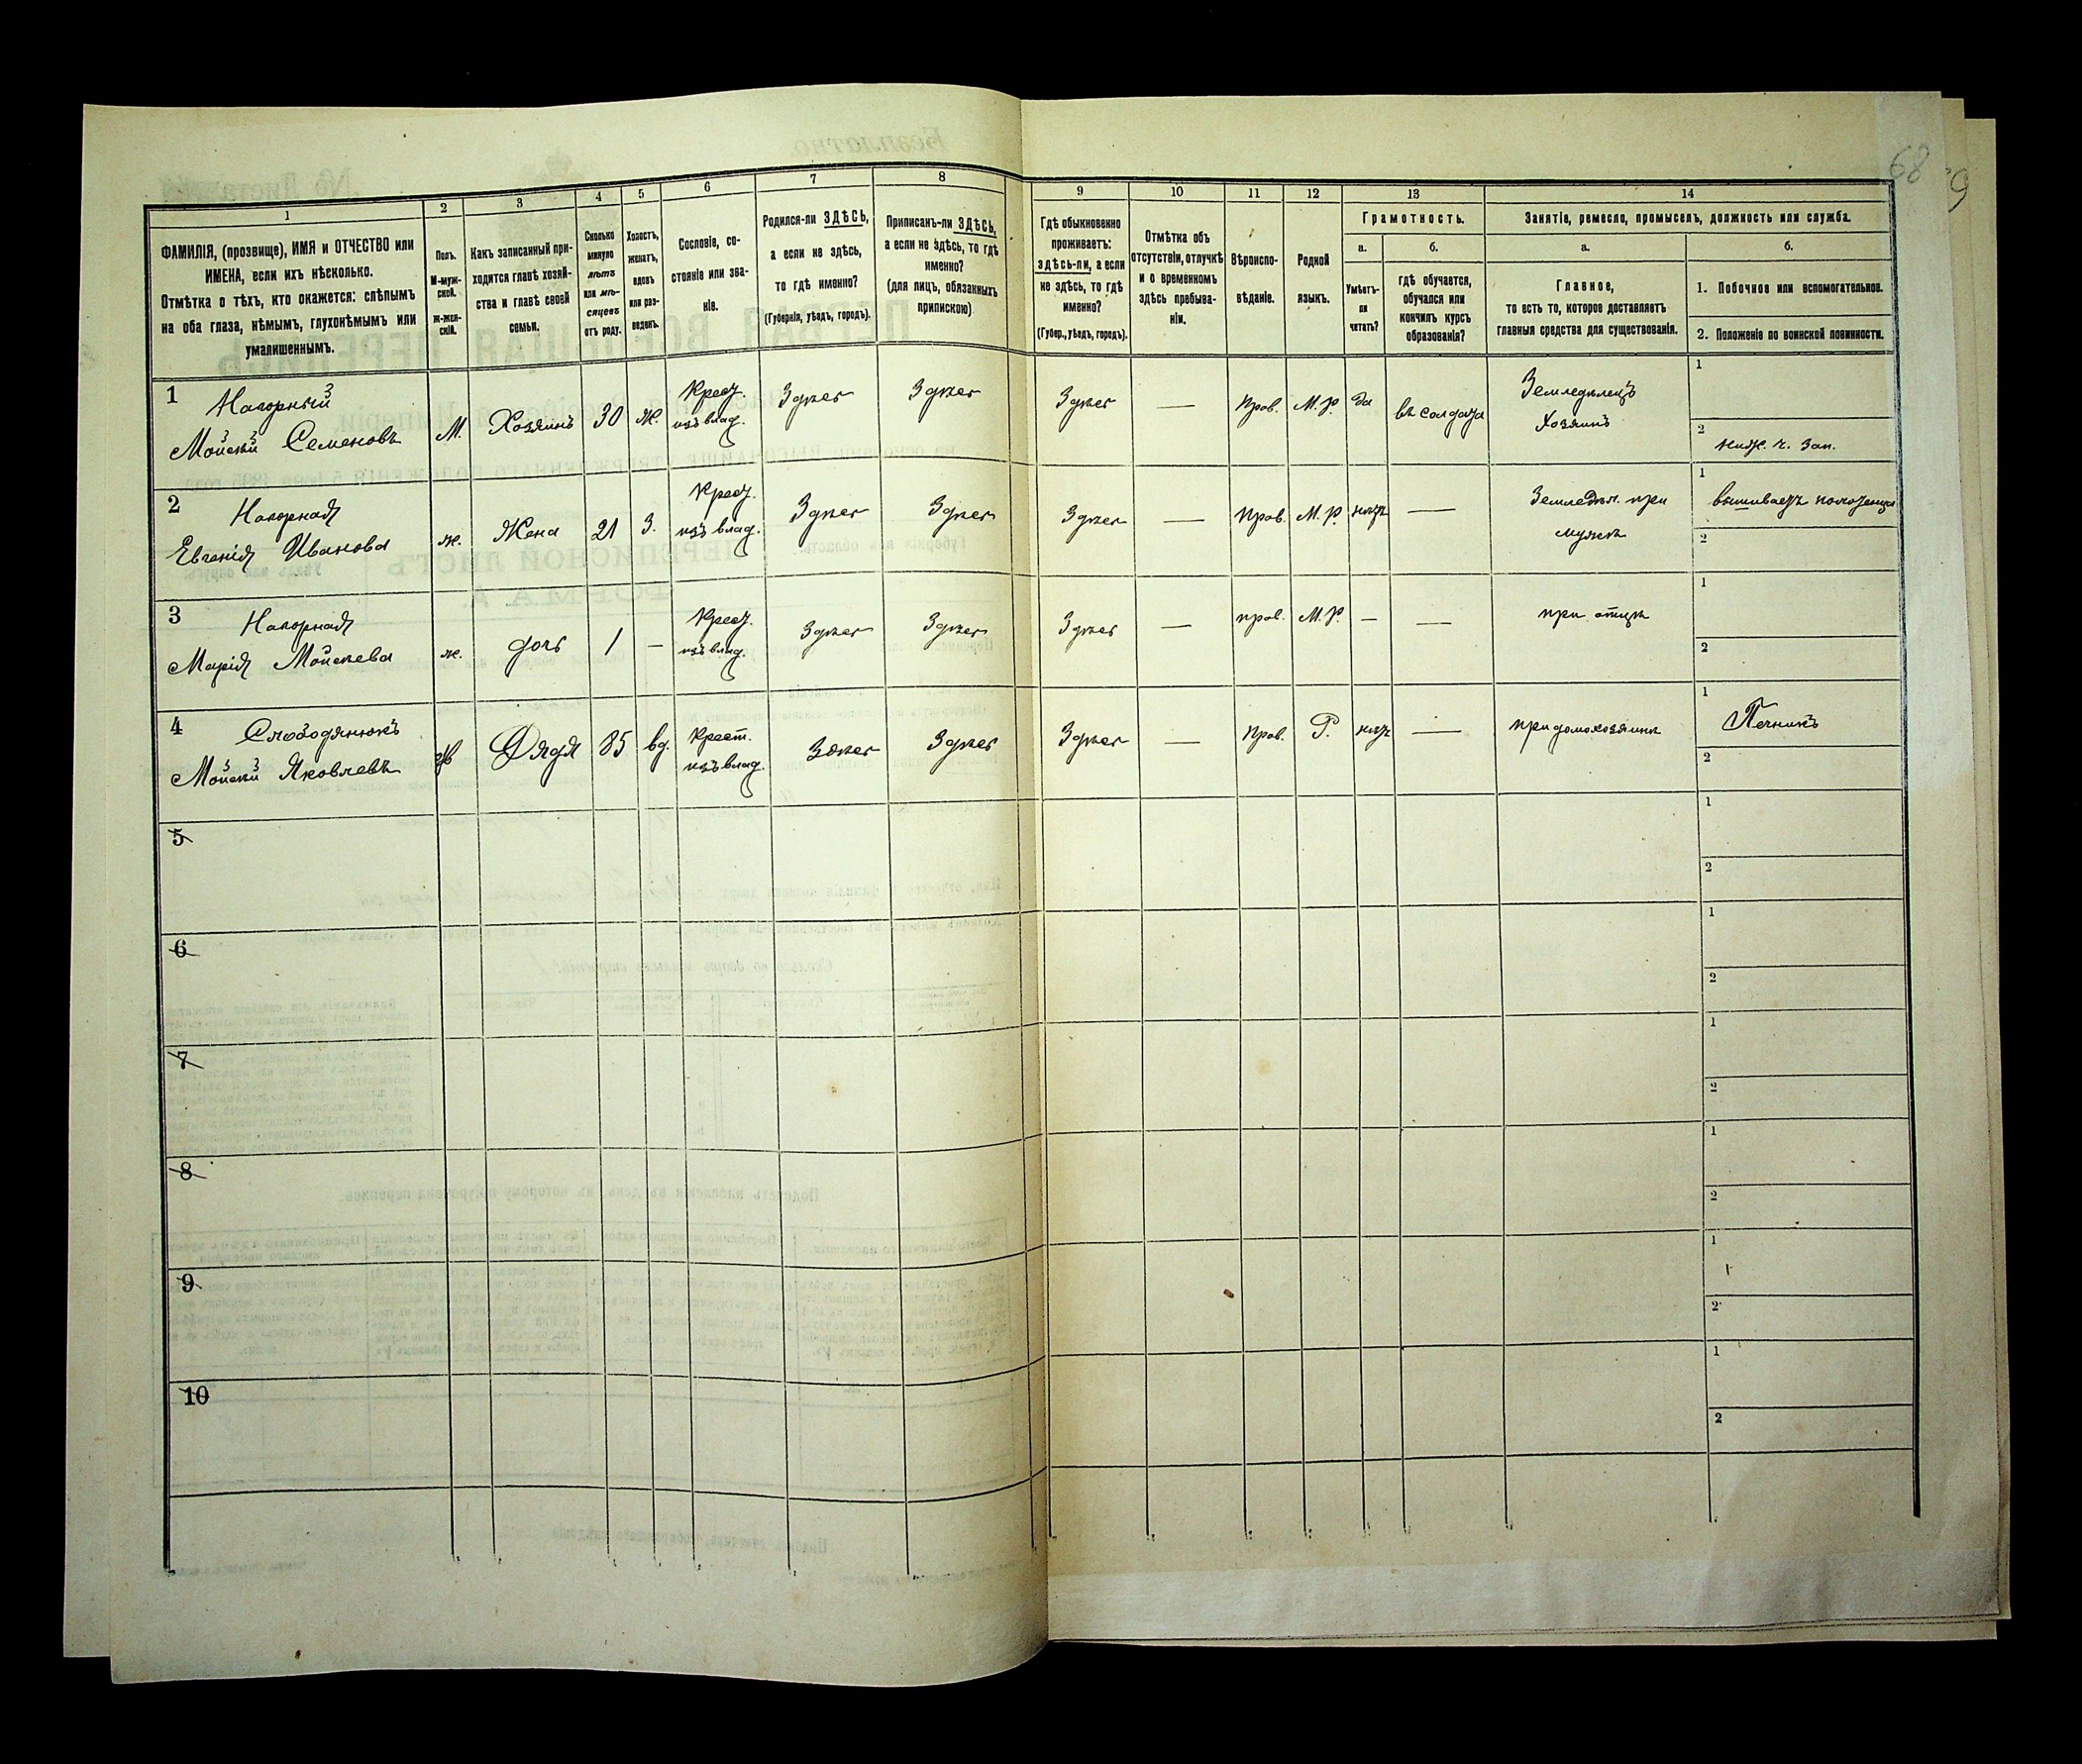 68
1 2 3 4 5 6 7 8 9 10 11 12 13 14
ФАМИЛІЯ, (прозвище), ИМЯ и ОТЧЕСТВО или
ИМЕНА, если ихъ нѣсколько.
Отмѣтка о тѣхъ, кто окажется: слѣпымъ
на оба глаза, нѣмымъ, глухонѣмымъ или
умалишеннымъ.
Полъ.
М-муж-
ской.
ж-жен-
скій.
Какъ записанный при-
ходится главѣ хозяй-
ства и главѣ своей
семьи.
Сколько
минуло
лѣтъ
или мѣ-
сяцевъ
отъ роду.
Холостъ,
женатъ,
вдовъ
или раз-
веденъ.
Сословіе, со-
стояніе или зва-
ніе.
Родился-ли ЗДѢСЬ,
а если не здѣсь,
то гдѣ именно?
(Губернія, уѣздъ, городъ).
Приписанъ-ли ЗДѢСЬ,
а если не здѣсь, то гдѣ
именно?
(для лицъ, обязанныхъ
припискою)
Гдѣ обыкновенно
проживаетъ:
здѣсь-ли, а если
не здѣсь, то гдѣ
именно?
(Губер., уѣздъ, городъ).
Отмѣтка объ
отсутствіи, отлучкѣ
и о временномъ
здѣсь пребыва-
ніи.
Вѣроиспо-
вѣданіе.
Родной
языкъ.
Грамотность.
а. б.
Умѣетъ-
ли
читать?
гдѣ обучается,
обучался или
кончилъ курсъ
образованія?
Занятіе, ремесло, промыселъ, должность или служба.
а. б.
Главное,
то есть то, которое доставляетъ
главныя средства для существованія.
1. Побочное или вспомогательное.
2. Положеніе по воинской повинности.
1 Нагорный
Мойсѣй Семеновъ М. Хозяинъ 30 ж. Крест.
изъ влад. Здѣсь Здѣсь Здѣсь — Прав. М. Р. да въ солдата Земледѣлецъ
Хозяинъ 1
2 ниж. ч. зап.
2 Нагорная
Евгенія Иванова ж. Жена 21 З. Крест.
изъ влад. Здѣсь Здѣсь Здѣсь — Прав. М. Р. нѣтъ — Земледѣл. при
мужѣ 1 вышиваетъ полотенца
2
3 Нагорная
Марія Мойсѣева ж. дочь 1 — Крест.
изъ влад. Здѣсь Здѣсь Здѣсь — прав. М. Р. — — при отцѣ 1
2
4 Слободянюкъ
Мойсѣй Яковлевъ Дядя 85 вд. Крест.
изъ влад. Здѣсь Здѣсь Здѣсь — Прав. Р. нѣтъ — при домохозяинѣ 1 Печникъ
2
5 1
2
6 1
2
7 1
2
8 1
2
9 1
2
10 1
2